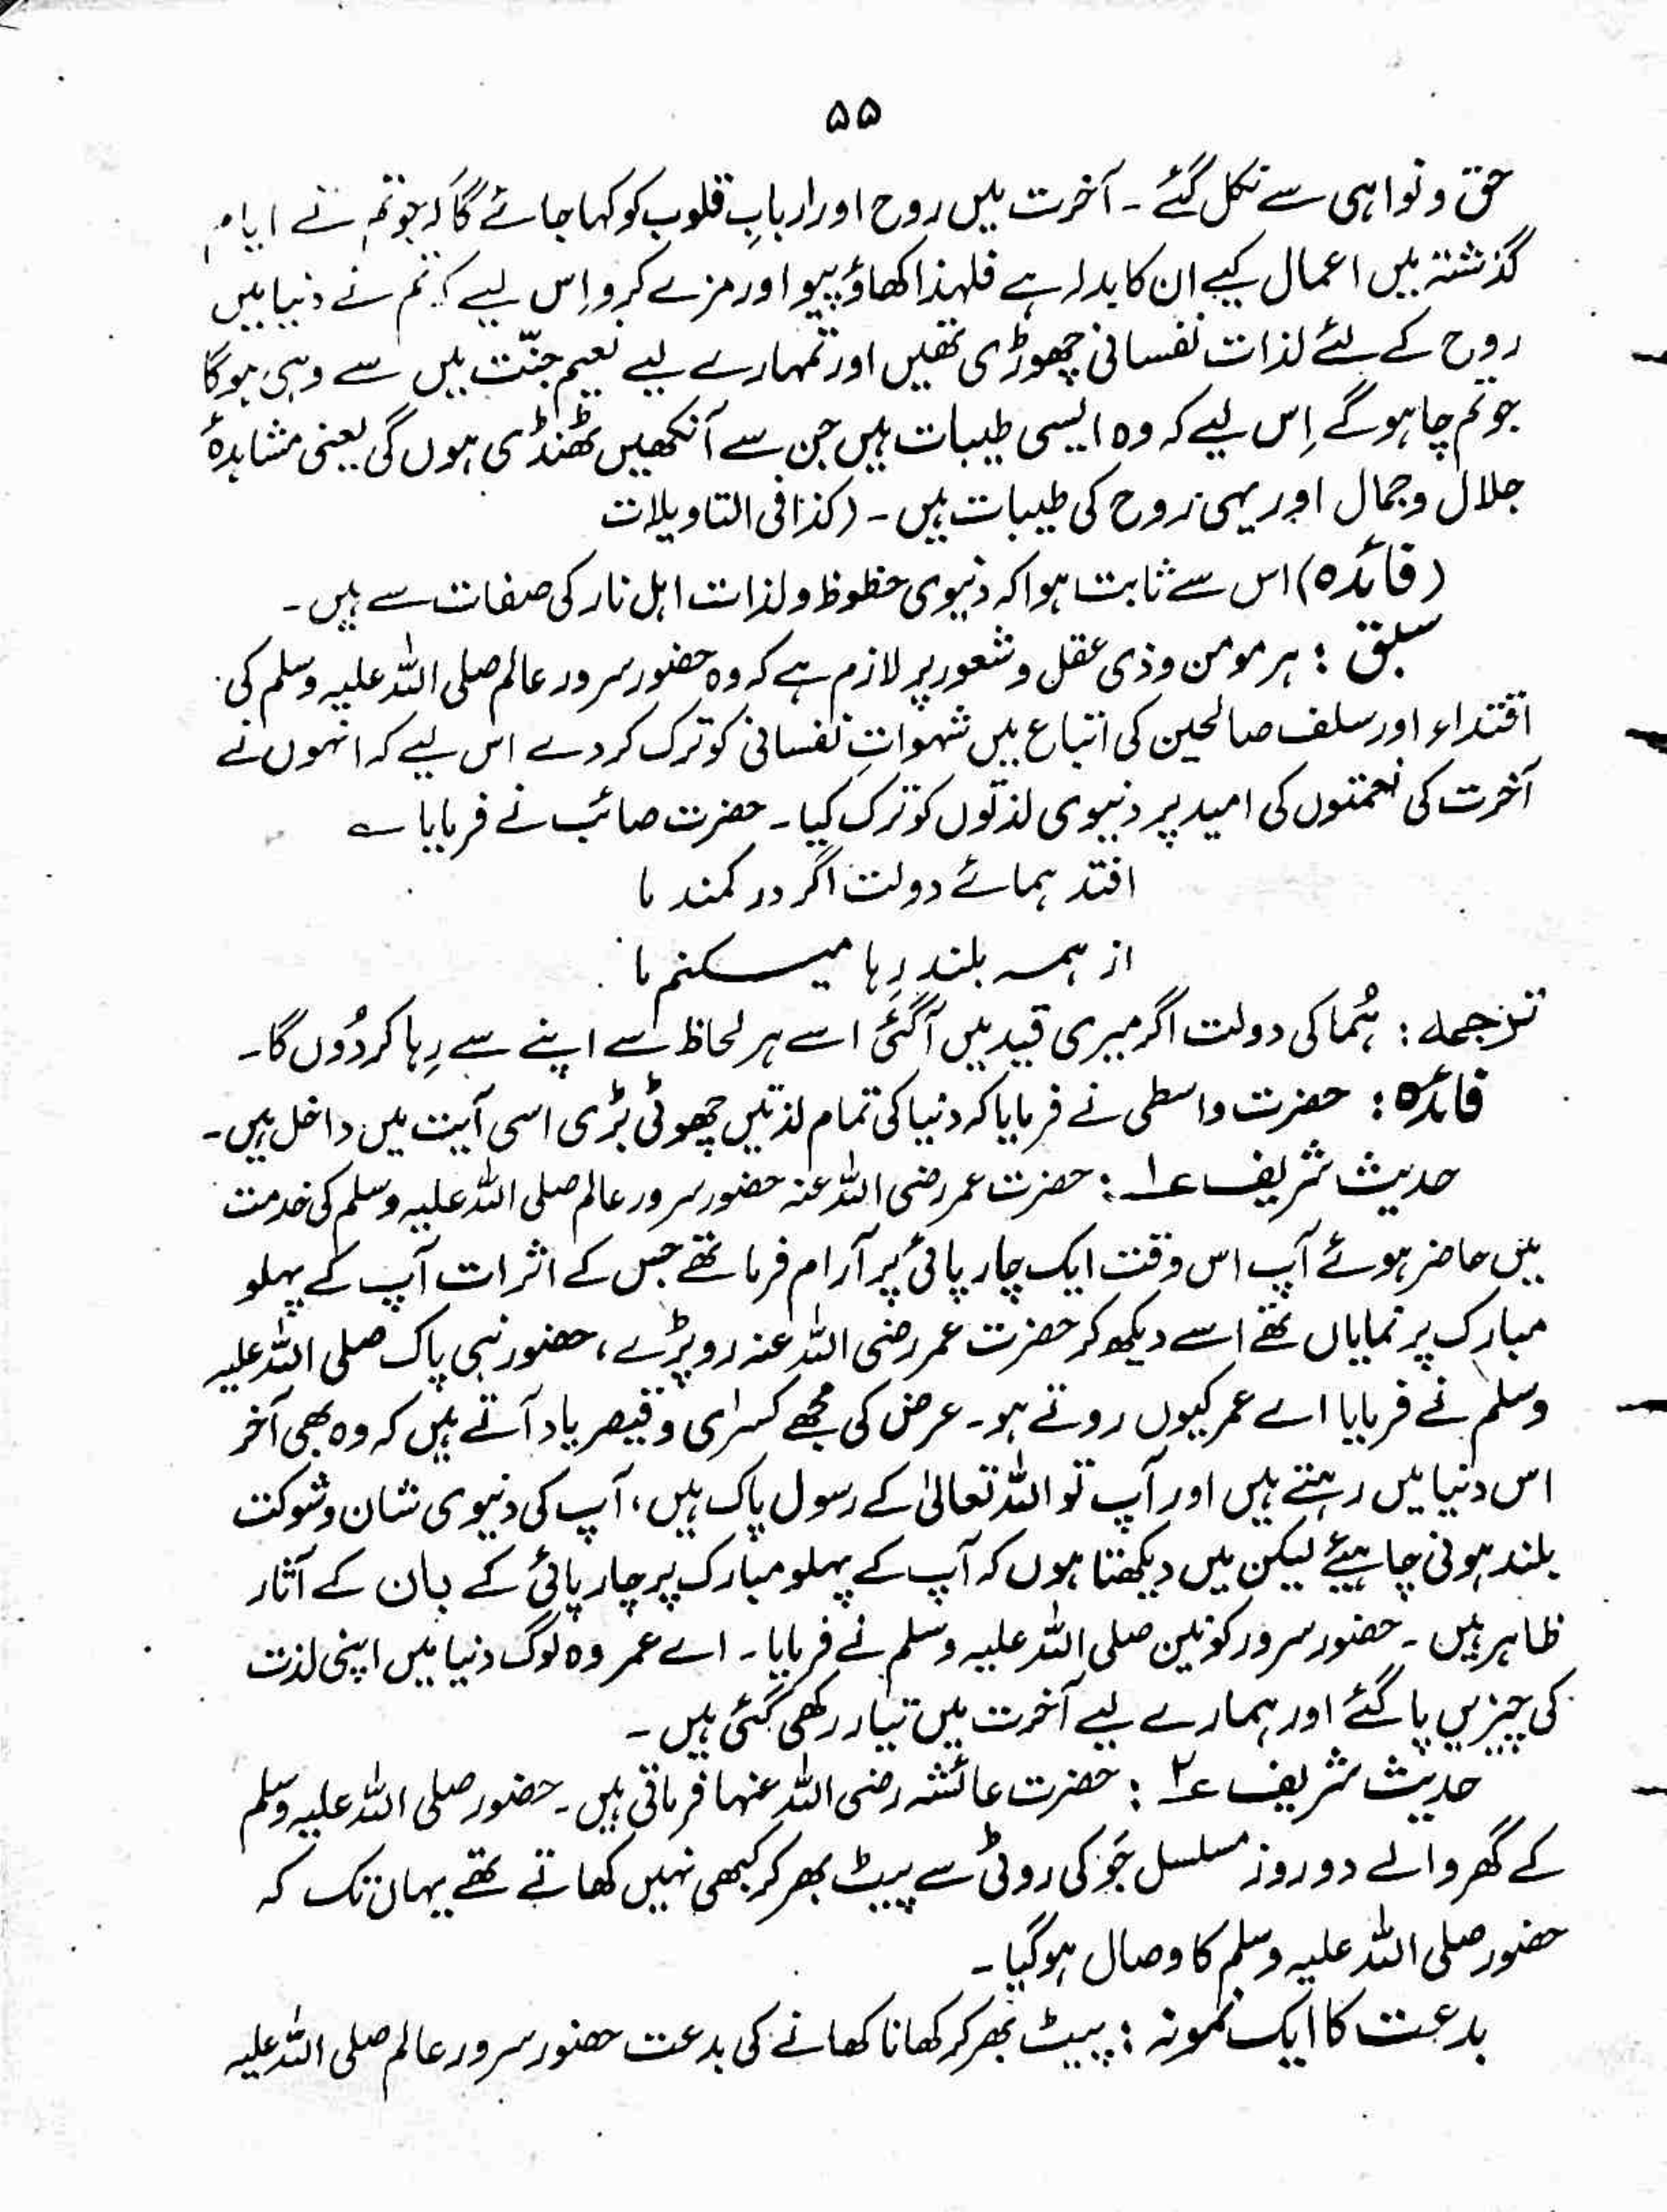 ۵۵
حق و نواہی سے نکل گئے ۔ آخرت میں روح اور اربابِ قلوب کو کہا جائے گا کہ جو تم نے ایام
گذشتہ میں اعمال کیے ان کا بدلہ ہے فلہذا کھاؤ پیو اور مزے کرو اِس لیے کہ تم نے دنیا میں
روح کے لئے لذات نفسانی چھوڑی تھیں اور تمہارے لیے نعیم جنّت میں سے وہی ہوگا
جو تم چاہو گے اِس لیے کہ وہ ایسی طیبات ہیں جن سے آنکھیں ٹھنڈی ہوں گی یعنی مشاہدۂ
جلال و جمال اور یہی روح کی طیبات ہیں ۔ (کذا فی التاویلات
(فائدہ) اس سے ثابت ہوا کہ دنیوی حظوظ و لذات اہل نار کی صفات سے ہیں ۔
سبق : ہر مومن و ذی عقل و شعور پر لازم ہے کہ وہ حضور سرور عالم صلی اللہ علیہ وسلم کی
اقتداء اور سلف صالحین کی اتباع میں شہواتِ نفسانی کو ترک کر دے اس لیے کہ انہوں نے
آخرت کی نعمتوں کی امید پر دنیوی لذتوں کو ترک کیا ۔ حضرت صائب نے فرمایا ؎
افتد ہمائے دولت اگر در کمند ما
از ہمہ بلند رِہا میکنم ما
ترجمہ : ہُما کی دولت اگر میری قید میں آگئی اسے ہر لحاظ سے اپنے سے رِہا کر دُوں گا ۔
فائدہ : حضرت واسطی نے فرمایا کہ دنیا کی تمام لذتیں چھوٹی بڑی اسی آیت میں داخل ہیں ۔
حدیث شریف ۱؎ : حضرت عمر رضی اللہ عنہ حضور سرور عالم صلی اللہ علیہ وسلم کی خدمت
میں حاضر ہوئے آپ اس وقت ایک چارپائی پر آرام فرما تھے جس کے اثرات آپ کے پہلو
مبارک پر نمایاں تھے اسے دیکھ کر حضرت عمر رضی اللہ عنہ رو پڑے ، حضور نبی پاک صلی اللہ علیہ
وسلم نے فرمایا اے عمر کیوں روتے ہو ۔ عرض کی مجھے کسرٰی و قیصر یاد آتے ہیں کہ وہ بھی آخر
اس دنیا میں رہتے ہیں اور آپ تو اللہ تعالیٰ کے رسول پاک ہیں ، آپ کی دنیوی شان و شوکت
بلند ہونی چاہیئے لیکن میں دیکھتا ہوں کہ آپ کے پہلو مبارک پر چارپائی کے بان کے آثار
ظاہر ہیں ۔ حضور سرور کونین صلی اللہ علیہ وسلم نے فرمایا ۔ اے عمر وہ لوگ دنیا میں اپنی لذت
کی چیزیں پا گئے اور ہمارے لیے آخرت میں تیار رکھی گئی ہیں ۔
حدیث شریف ۲؎ : حضرت عائشہ رضی اللہ عنہا فرماتی ہیں ۔ حضور صلی اللہ علیہ وسلم
کے گھر والے دو روز مسلسل جَو کی روٹی سے پیٹ بھر کر کبھی نہیں کھاتے تھے یہاں تک کہ
حضور صلی اللہ علیہ وسلم کا وصال ہوگیا ۔
بدعت کا ایک نمونہ : پیٹ بھر کر کھانا کھانے کی بدعت حضور سرور عالم صلی اللہ علیہ